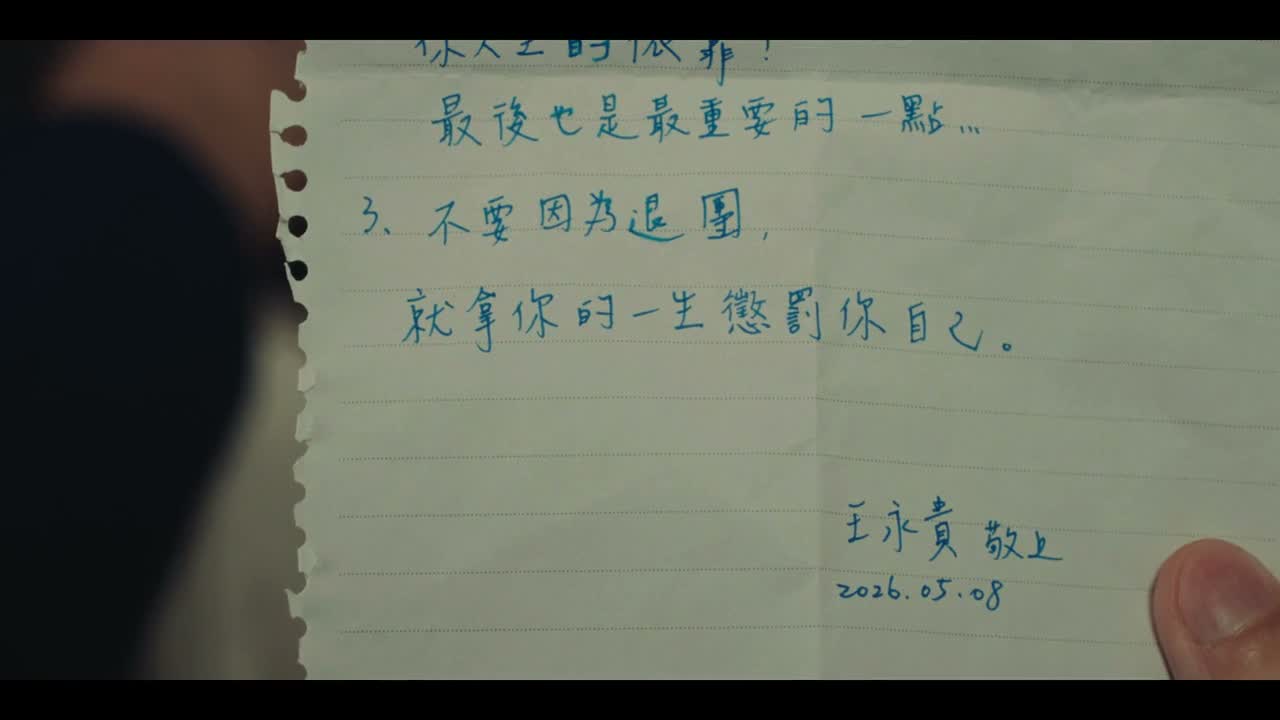 你人生的依靠！
最後也是最重要的一點...
3、不要因為退團，
就拿你的一生懲罰你自己。
王永貴 敬上
2026.05.08